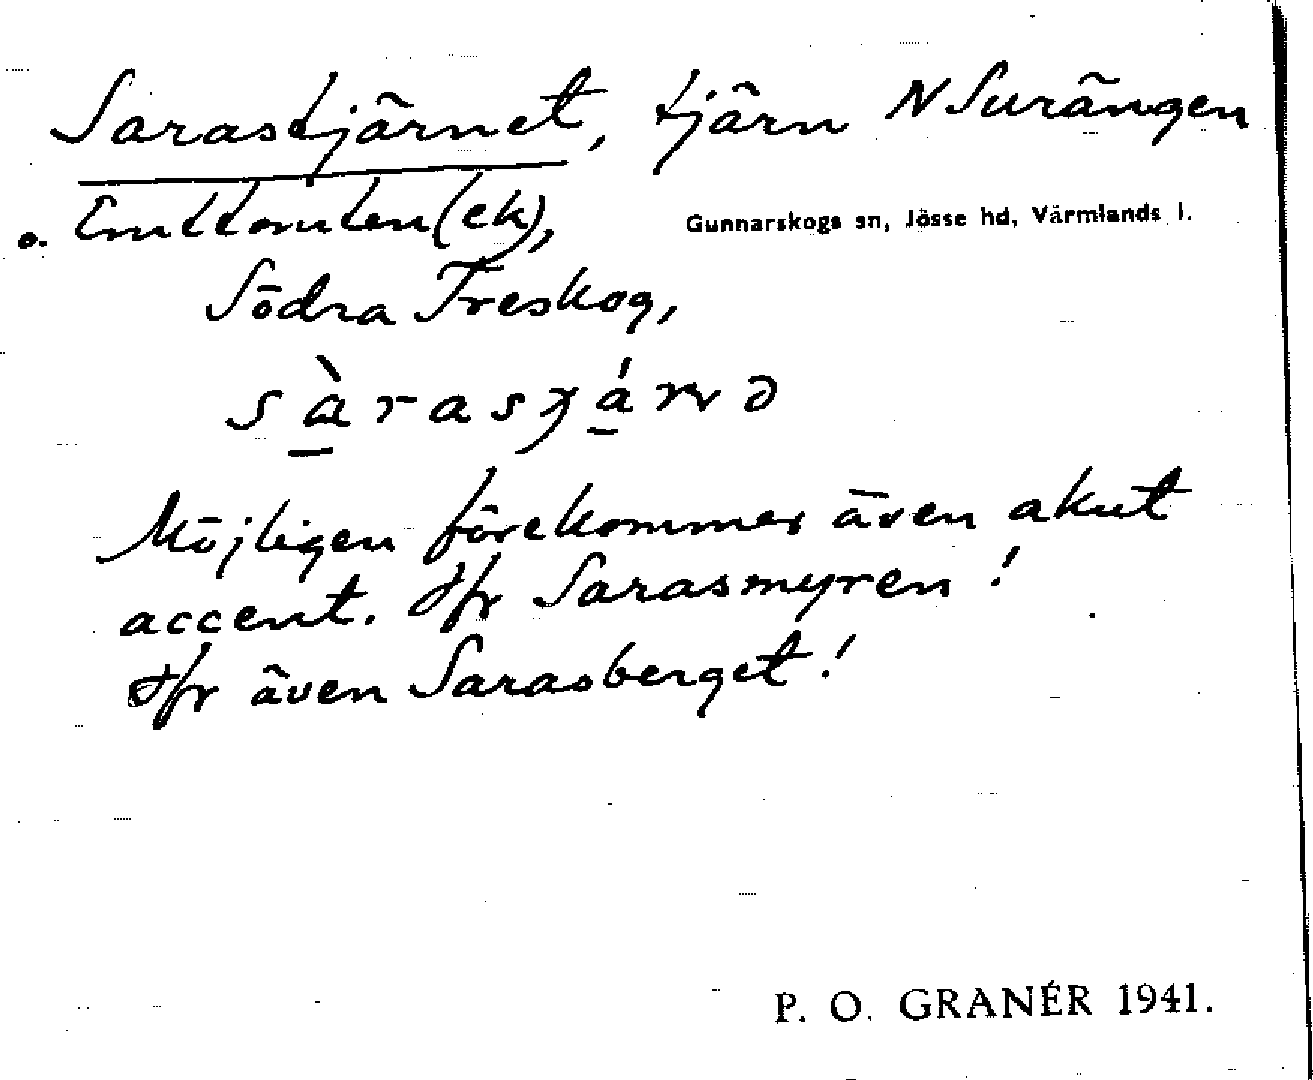 Sarastjärnet, tjärn N Surängen
o. Emttomten (ek),
Gunnarskogs sn, Jösse hd, Värmlands l.
Södra Treskog,
sàrasχánə
Möjligen förekommer även akut
accent. Jfr Sarasmyren!
Jfr även Sarasberget!
P. O. GRANÉR 1941.